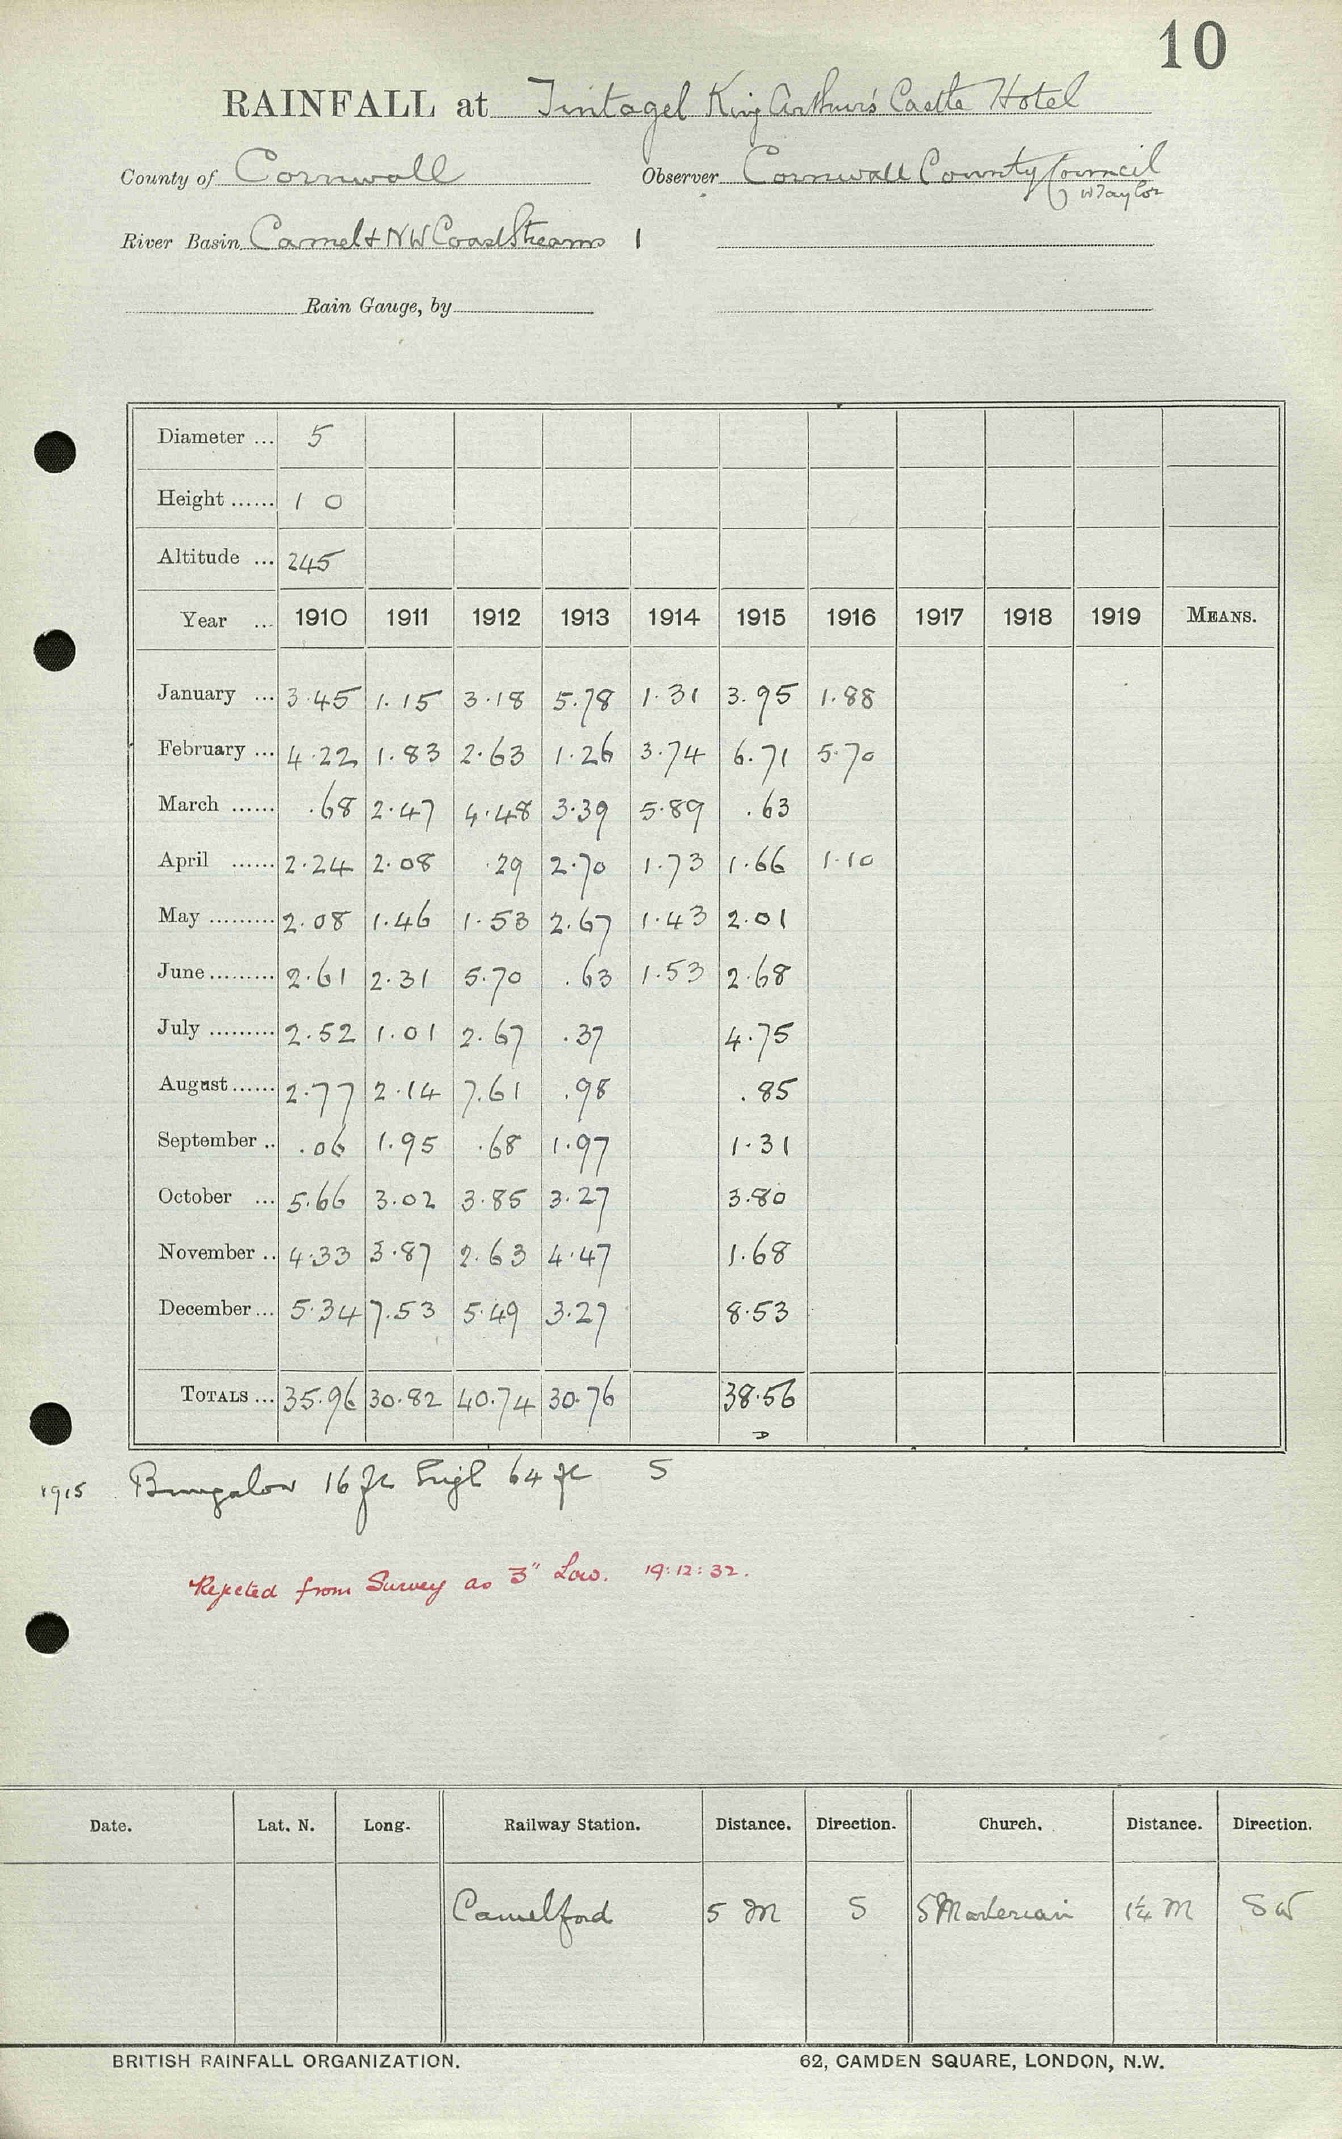 10
RAINFALL at Tintagel King Arthur's Castle Hotel
County of Cornwall Observer Cornwall County Council
W Taylor
River Basin Camel & NW Coast Streams 1
Rain Gauge, by
Diameter ... 5
Height ...... 1 0
Altitude ... 245
Year ... 1910 1911 1912 1913 1914 1915 1916 1917 1918 1919 MEANS.
January ... 3.45 1.15 3.18 5.78 1.31 3.95 1.88
February ... 4.22 1.83 2.63 1.26 3.74 6.71 5.70
March ...... .68 2.47 4.48 3.39 5.89 .63
April ...... 2.24 2.08 .29 2.70 1.73 1.66 1.10
May ......... 2.08 1.46 1.53 2.67 1.43 2.01
June ......... 2.61 2.31 5.70 .63 1.53 2.68
July ......... 2.52 1.01 2.67 .37 4.75
August ...... 2.77 2.14 7.61 .98 .85
September .. .06 1.95 .68 1.97 1.31
October ... 5.66 3.02 3.85 3.27 3.80
November .. 4.33 3.87 2.63 4.47 1.68
December ... 5.34 7.53 5.49 3.27 8.53
TOTALS ... 35.96 30.82 40.74 30.76 38.56
1915 Bungalow 16 ft high 64 ft S
Rejected from Survey as 3" Low. 19:12:32.
Date. Lat. N. Long. Railway Station. Distance. Direction. Church. Distance. Direction.
Camelford 5 M S 1¼ M SW
BRITISH RAINFALL ORGANIZATION. 62, CAMDEN SQUARE, LONDON, N.W.